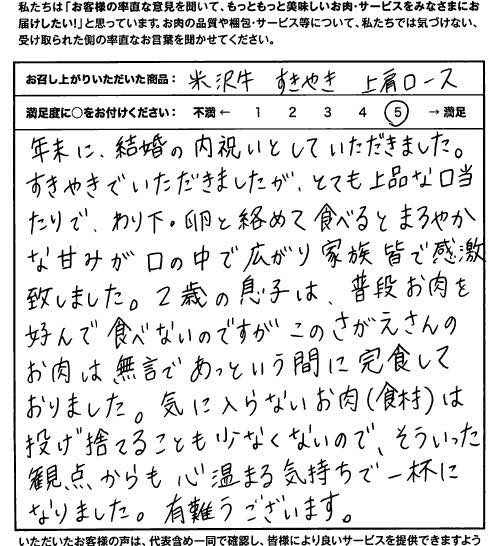 私たちは「お客様の率直な意見を聞いて、もっともっと美味しいお肉・サービスをみなさまにお
届けしたい！」と思っています。お肉の品質や梱包・サービス等について、私たちでは気づけない、
受け取られた側の率直なお言葉を聞かせてください。
お召し上がりいただいた商品： 米沢牛 すきやき 上肩ロース
満足度に○をお付けください： 不満 ← 1 2 3 4 5 → 満足
年末に、結婚の内祝いとしていただきました。
すきやきでいただきましたが、とても上品な口当
たりで、わり下・卵と絡めて食べるとまろやか
な甘みが口の中で広がり家族皆で感激
致しました。2歳の息子は、普段お肉を
好んで食べないのですがこのさがえさんの
お肉は無言であっという間に完食して
おりました。気に入らないお肉(食材)は
投げ捨てることも少なくないので、そういった
観点からも心温まる気持ちで一杯に
なりました。有難うございます。
いただいたお客様の声は、代表含め一同で確認し、皆様により良いサービスを提供できますよう